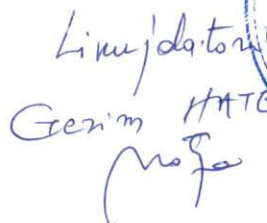 Likujdatori
Gezim HATE